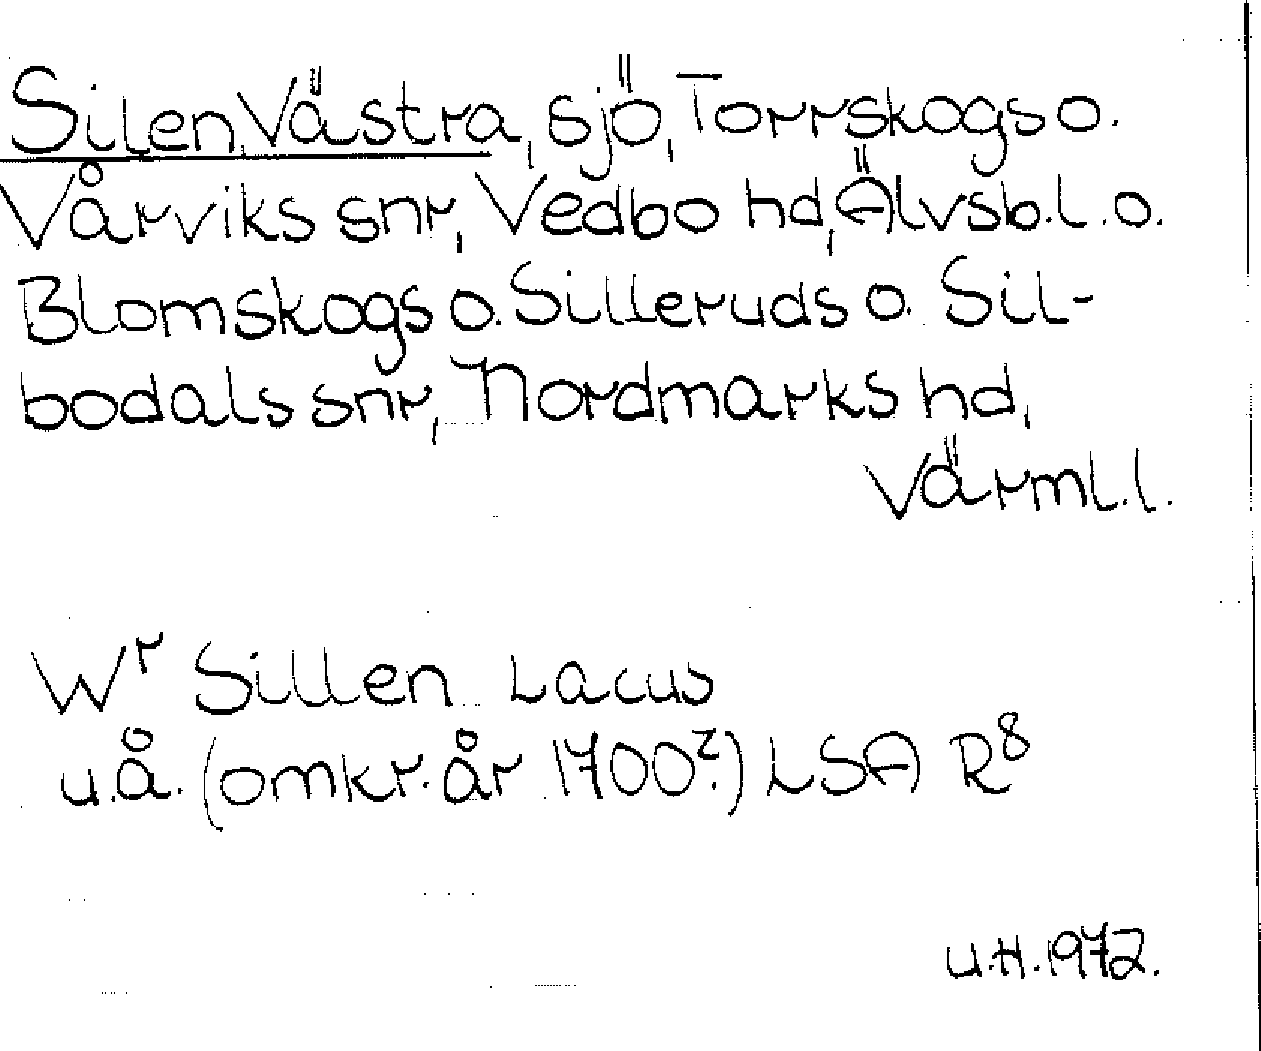 Silen, Västra, sjö, Torrskogs o.
Vårviks snr, Vedbo hd, Älvsb.l. o.
Blomskogs o. Silleruds o. Sil-
bodals snr, Nordmarks hd,
Värml.l.
Wʳ Sillen Lacus
u.å. (omkr. år 1700?) LSA R⁸
U.H. 1972.